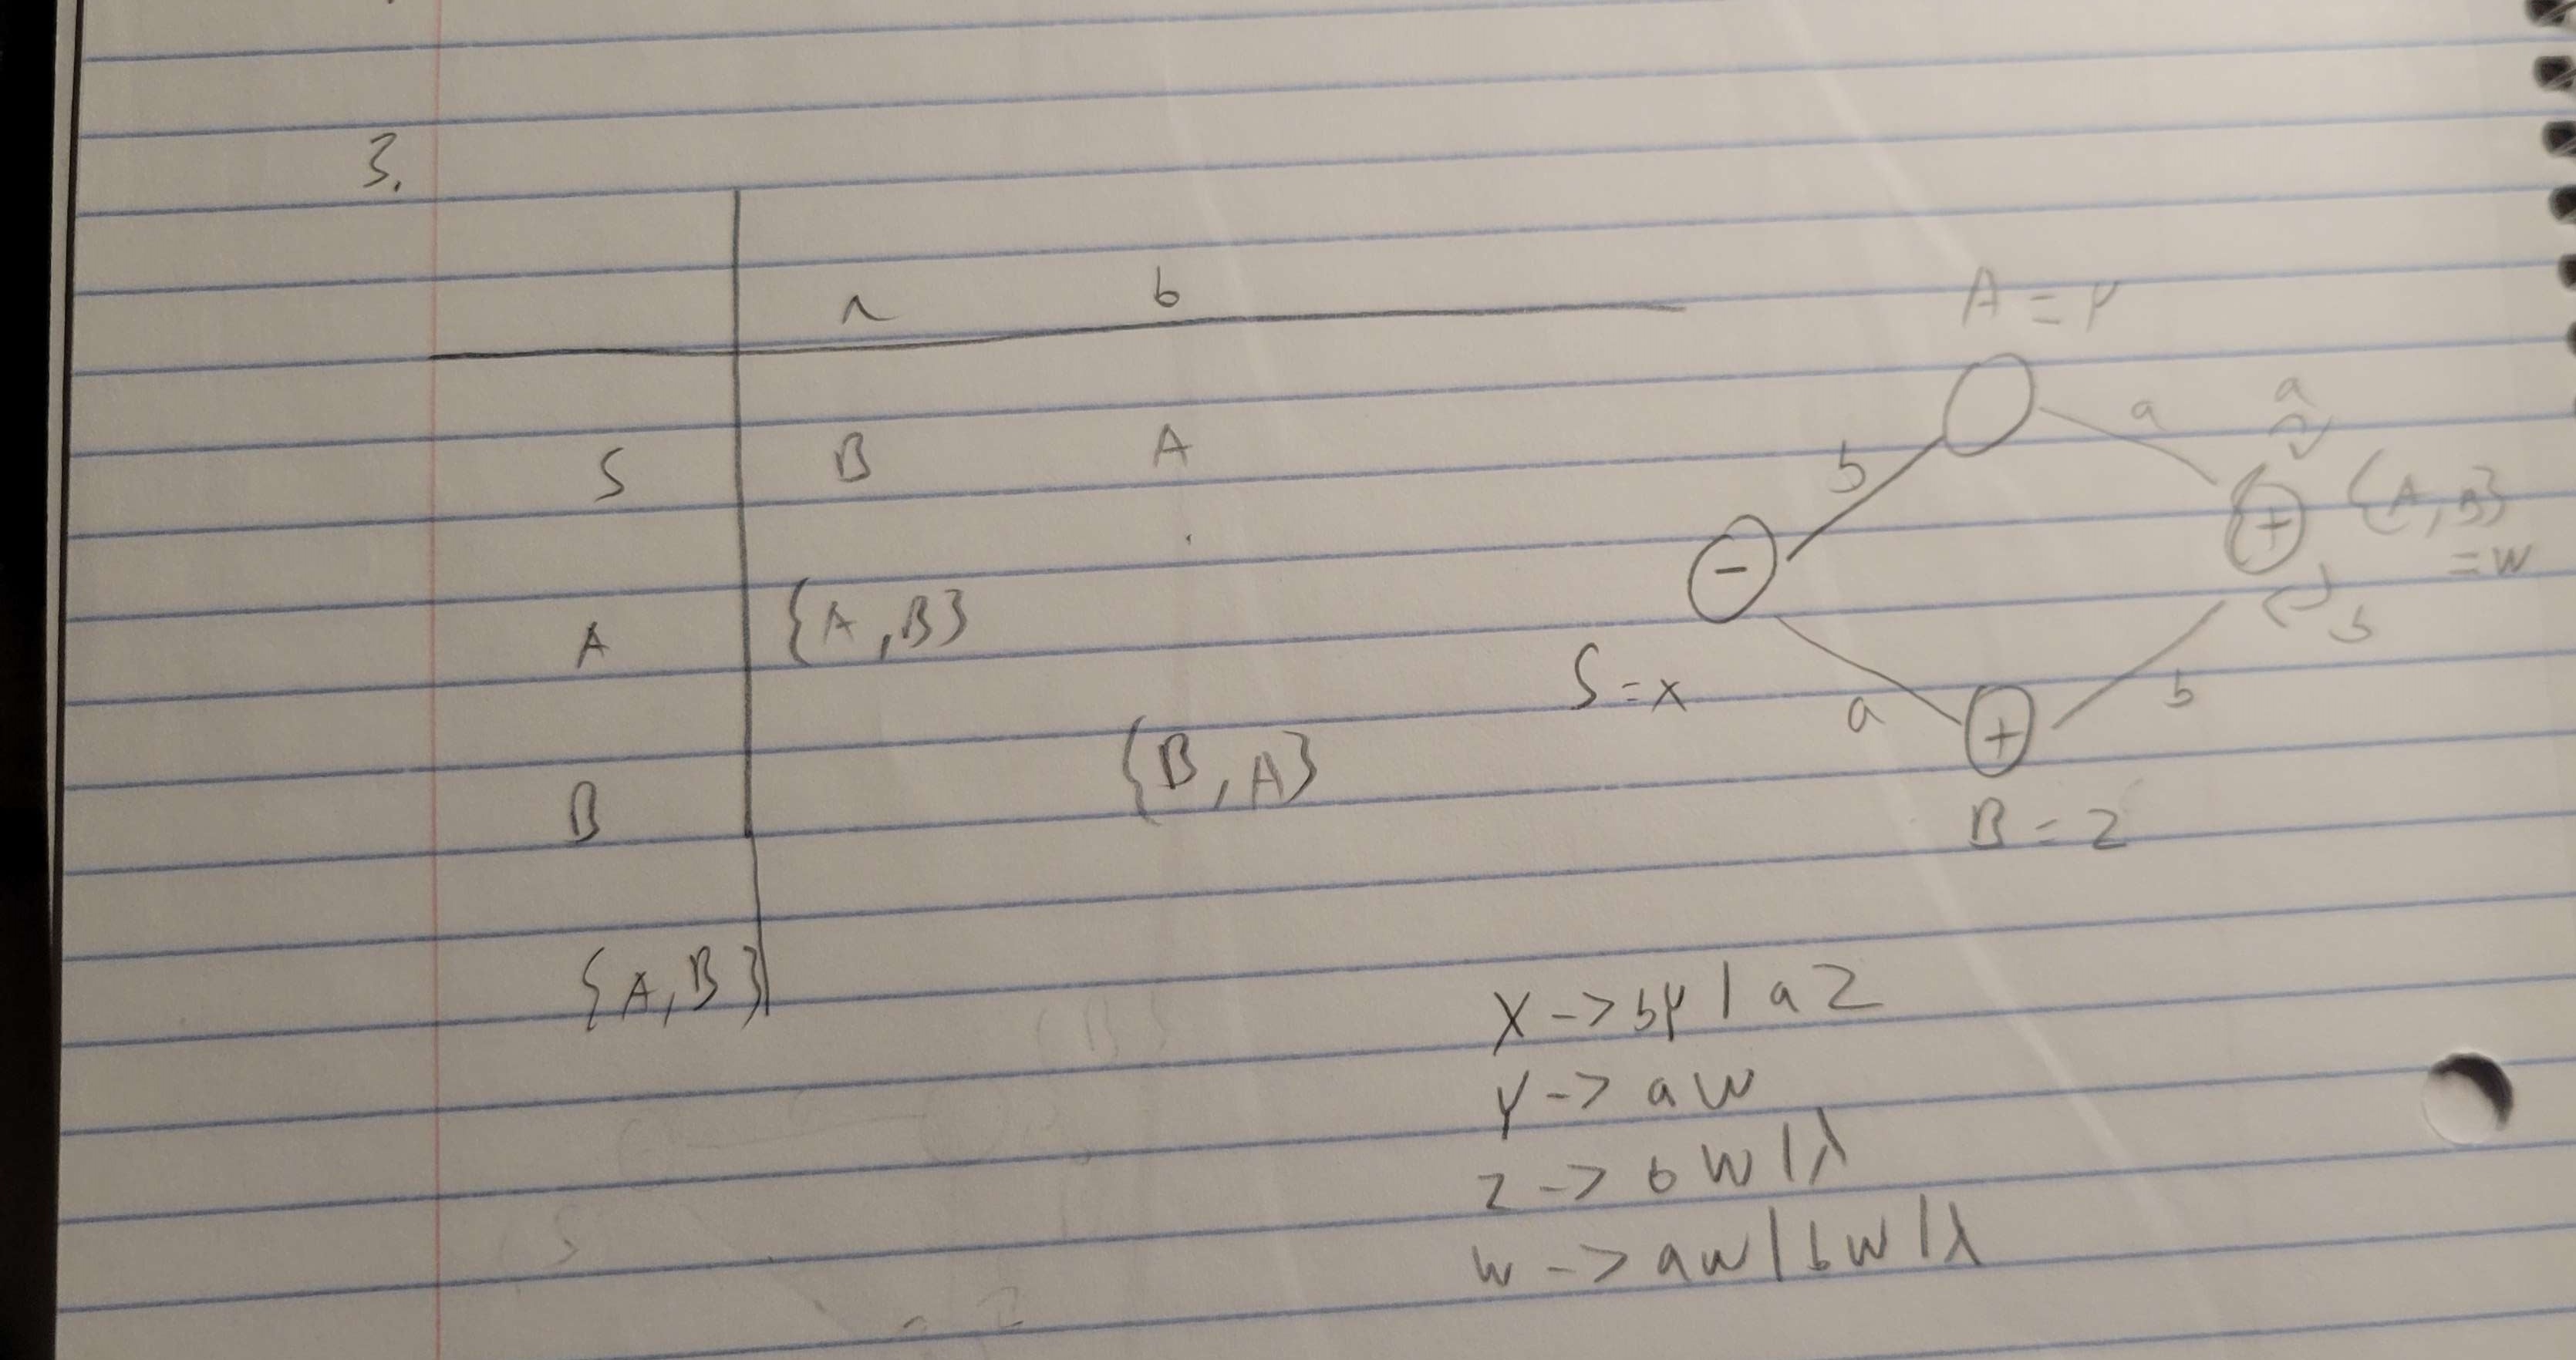 3.
a b
S B A
A {A,B}
B {B,A}
{A,B}
A = Y
b a a
- + {A,B}
= W
S = X a b b
+
B = Z
X -> bY | aZ
Y -> aW
Z -> bW | λ
W -> aW | bW | λ